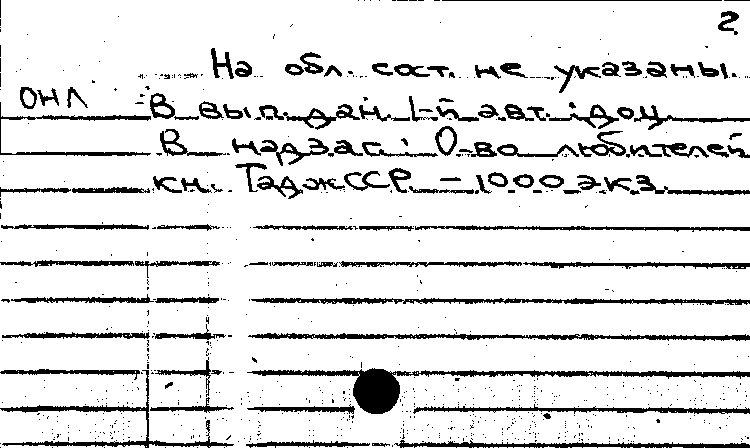 2
На обл. сост. не указаны.
ОНЛ В вып. дан. 1-й авт.: доц.
В надзаг.: О-во любителей
кн. ТаджССР. - 1000 экз.